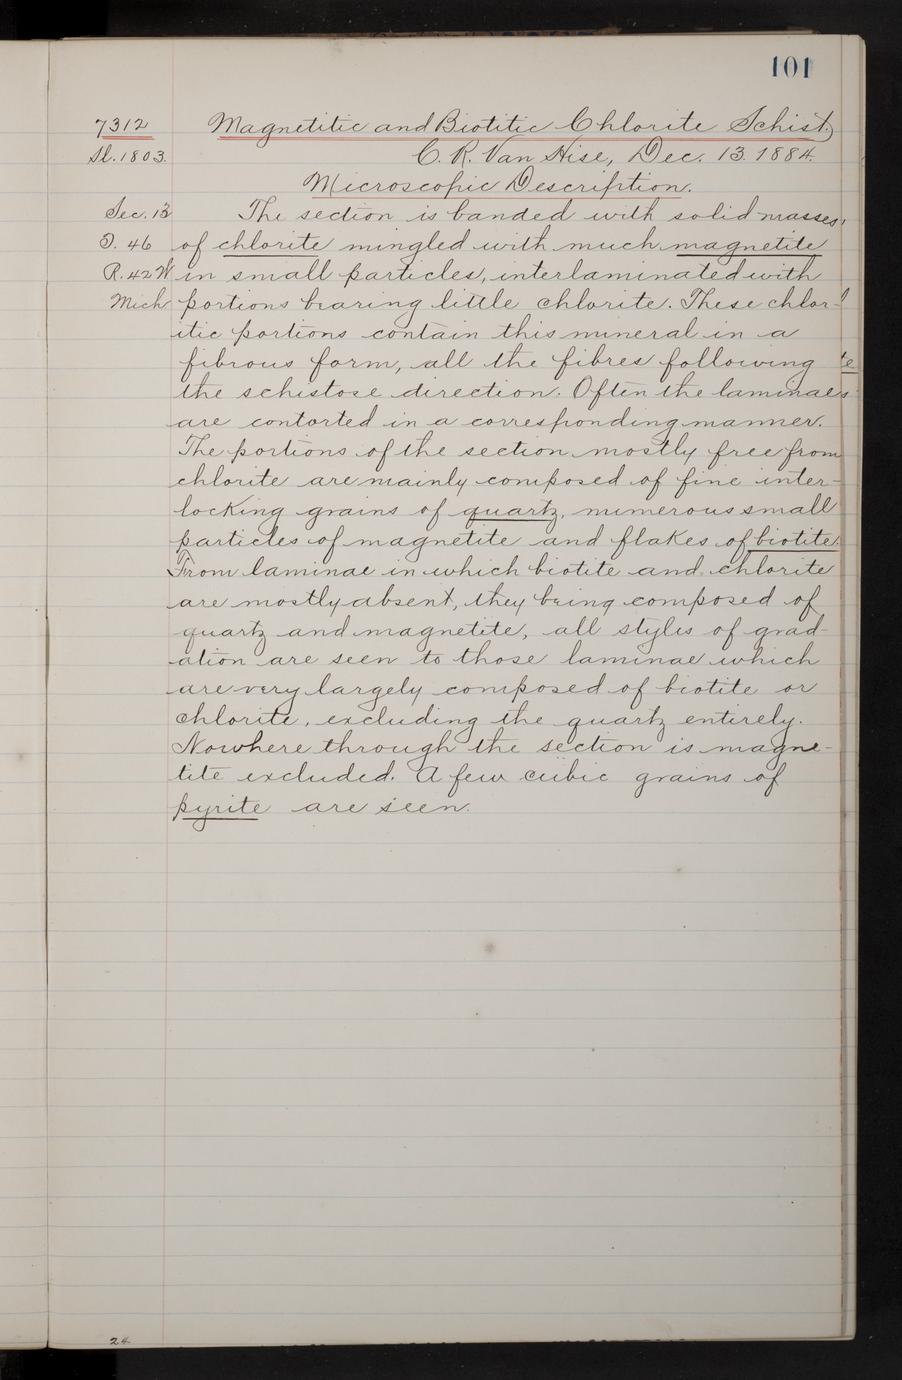 101
7312 Magnetitic and Biotitic Chlorite Schist.
Sl. 1803. C. R. Van Hise, Dec. 13. 1884.
Microscopic Description.
Sec. 13 The section is banded with solid masses
T. 46 of chlorite mingled with much magnetite
R. 42 W in small particles, interlaminated with
Mich portions bearing little chlorite. These chlor-
itic portions contain this mineral in a
fibrous form, all the fibres following
the schistose direction. Often the laminae
are contorted in a corresponding manner.
The portions of the section mostly free from
chlorite are mainly composed of fine inter-
locking grains of quartz, numerous small
particles of magnetite and flakes of biotite.
From laminae in which biotite and chlorite
are mostly absent, they being composed of
quartz and magnetite, all styles of grad-
ation are seen to those laminae which
are very largely composed of biotite or
chlorite, excluding the quartz entirely.
Nowhere through the section is magne-
tite excluded. A few cubic grains of
pyrite are seen.
24